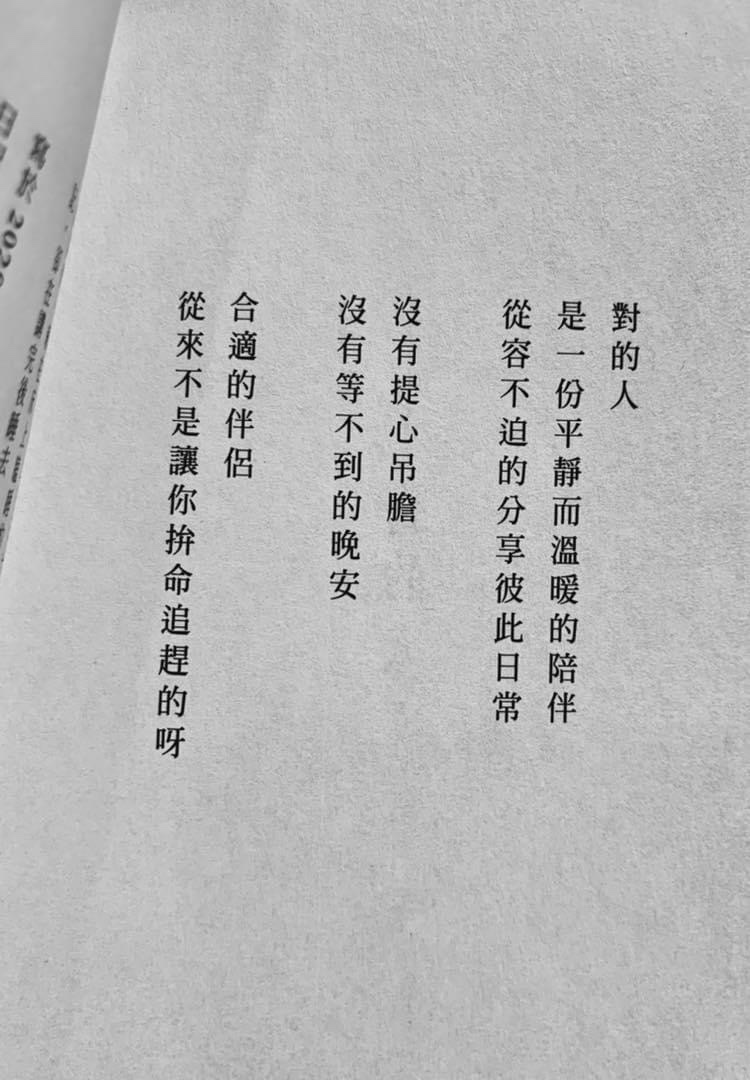 對的人
是一份平靜而溫暖的陪伴
從容不迫的分享彼此日常
沒有提心吊膽
沒有等不到的晚安
合適的伴侶
從來不是讓你拚命追趕的呀
寫於 2020